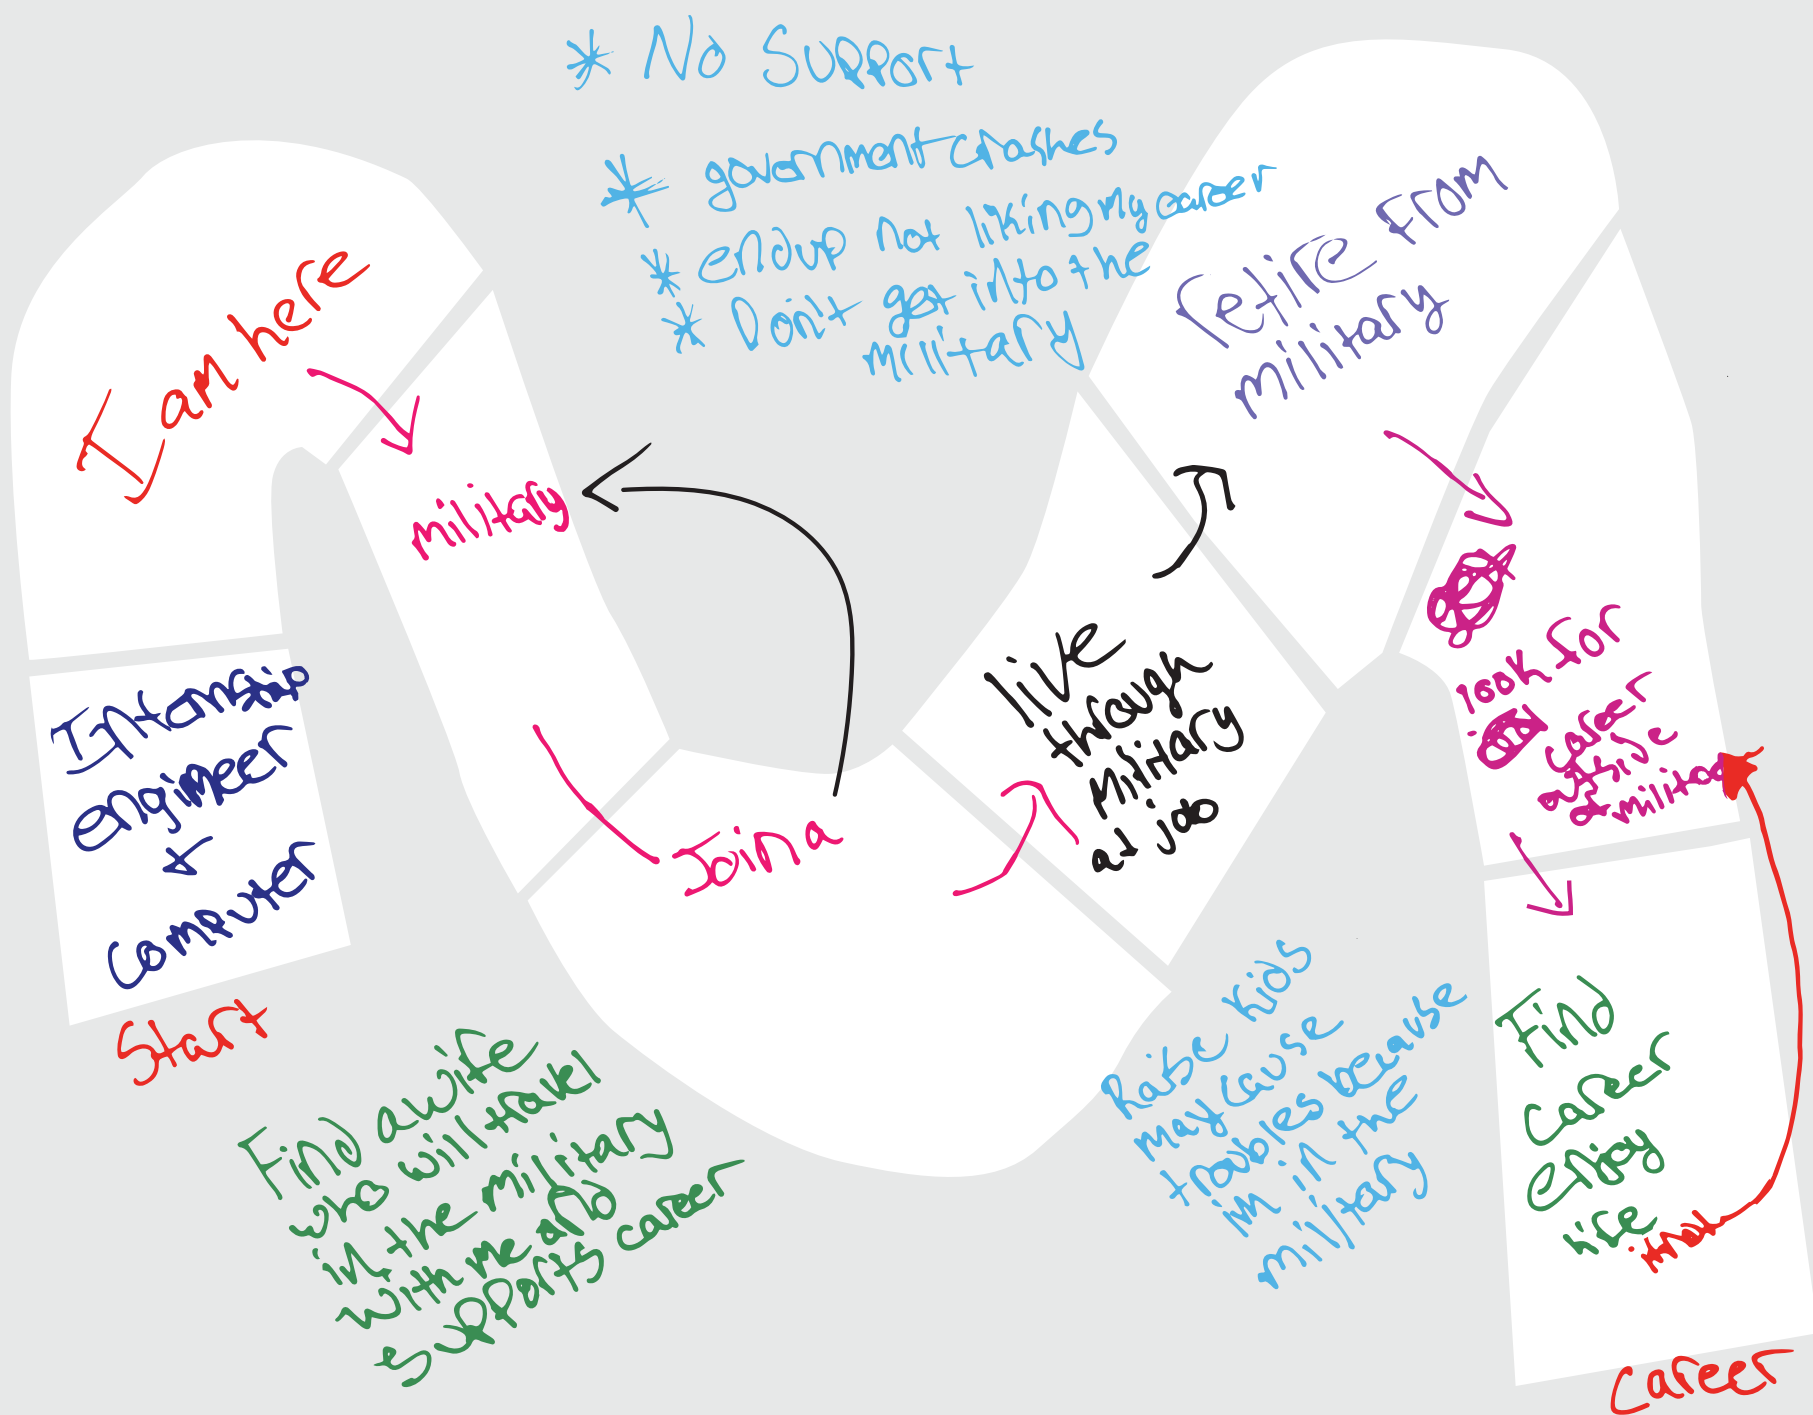 * No Support
* government crashes
* end up not liking my career
* Don't get into the
military
I am here
military
retire from
military
Internship
engineer
+
computer
Start
Join a
live
through
military
at job
look for
career
outside
of military
Find
career
enjoy
life
Career
Find a wife
who will travel
in the military
with me and
supports career
Raise kids
may cause
troubles because
im in the
military